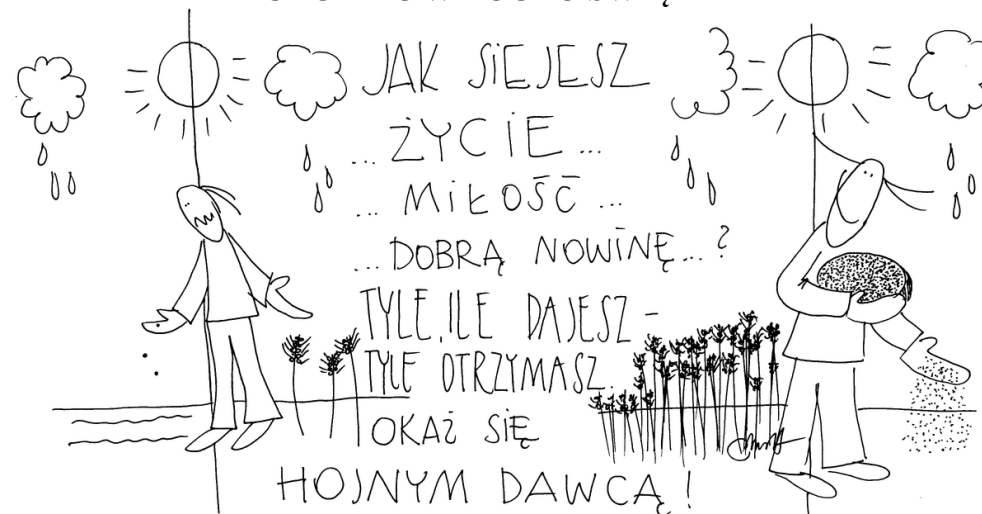 JAK SIEJESZ
... ŻYCIE ...
... MIŁOŚĆ ...
... DOBRĄ NOWINĘ... ?
TYLE, ILE DAJESZ -
TYLE OTRZYMASZ.
OKAŻ SIĘ
HOJNYM DAWCĄ!